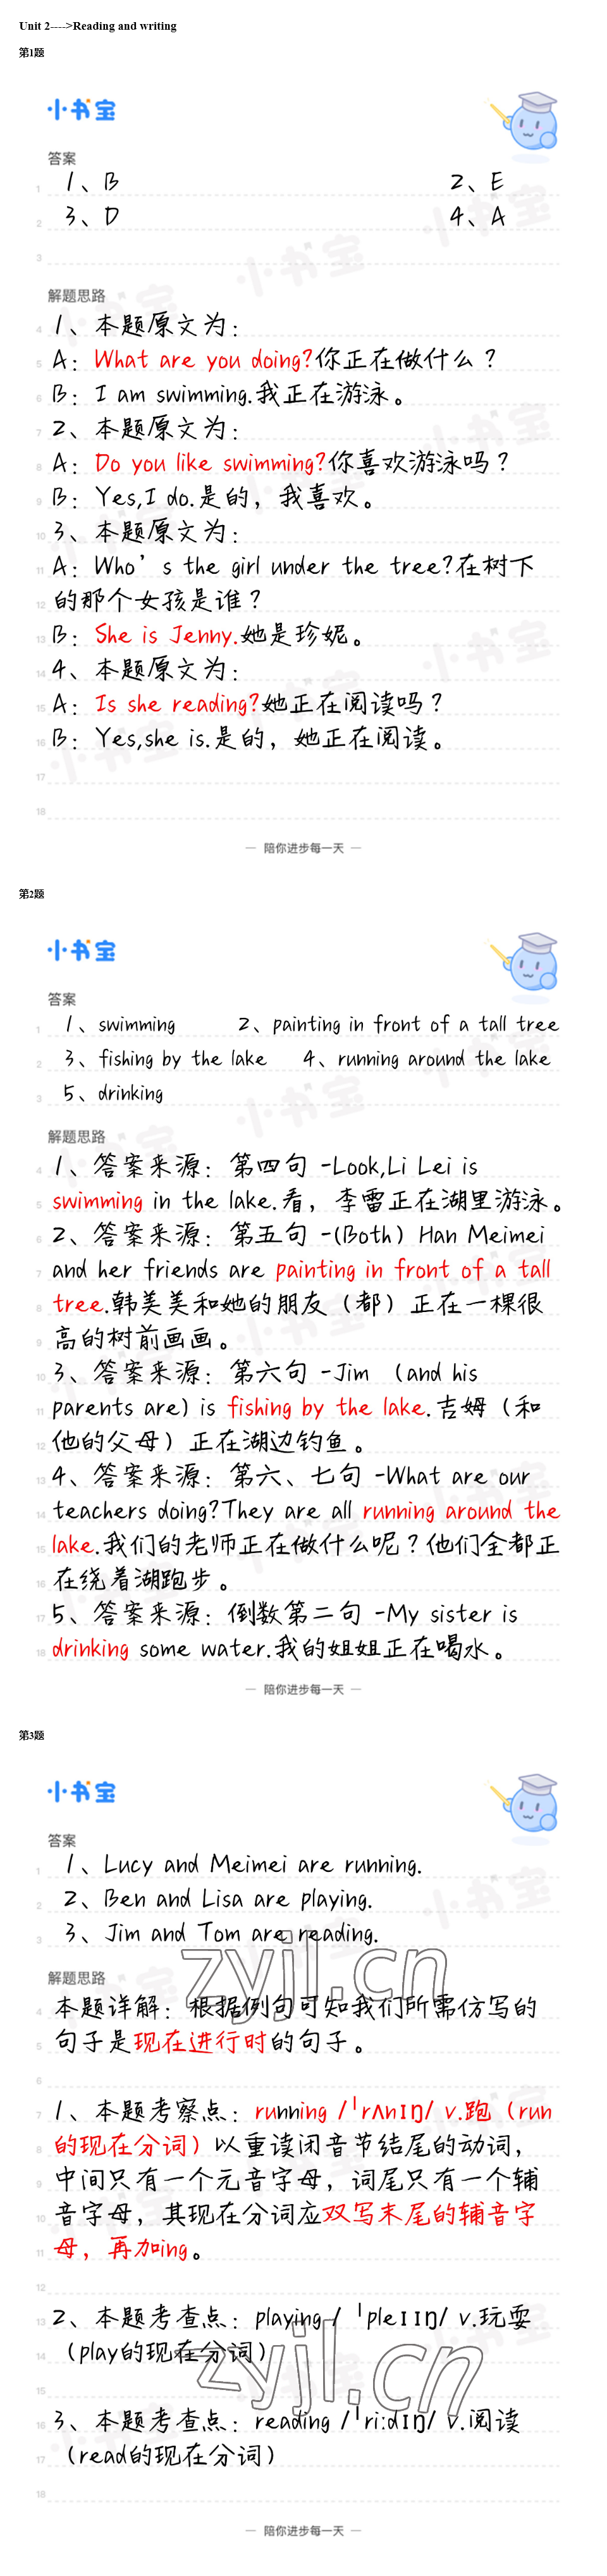 Unit 2---->Reading and writing
第1题
小书宝
答案
1 1、B 2、E
2 3、D 4、A
3
解题思路
4 1、本题原文为:
5 A: What are you doing?你正在做什么？
6 B: I am swimming.我正在游泳。
7 2、本题原文为:
8 A: Do you like swimming?你喜欢游泳吗？
9 B: Yes,I do.是的，我喜欢。
10 3、本题原文为:
11 A: Who’s the girl under the tree?在树下
12 的那个女孩是谁？
13 B: She is Jenny.她是珍妮。
14 4、本题原文为:
15 A: Is she reading?她正在阅读吗？
16 B: Yes,she is.是的，她正在阅读。
17
18
— 陪你进步每一天 —
第2题
小书宝
答案
1 1、swimming 2、painting in front of a tall tree
2 3、fishing by the lake 4、running around the lake
3 5、drinking
解题思路
4 1、答案来源: 第四句 -Look,Li Lei is
5 swimming in the lake.看，李雷正在湖里游泳。
6 2、答案来源: 第五句 -(Both) Han Meimei
7 and her friends are painting in front of a tall
8 tree.韩美美和她的朋友（都）正在一棵很
9 高的树前画画。
10 3、答案来源: 第六句 -Jim （and his
11 parents are) is fishing by the lake.吉姆（和
12 他的父母）正在湖边钓鱼。
13 4、答案来源: 第六、七句 -What are our
14 teachers doing?They are all running around the
15 lake.我们的老师正在做什么呢？他们全都正
16 在绕着湖跑步。
17 5、答案来源: 倒数第二句 -My sister is
18 drinking some water.我的姐姐正在喝水。
— 陪你进步每一天 —
第3题
小书宝
答案
1 1、Lucy and Meimei are running.
2 2、Ben and Lisa are playing.
3 3、Jim and Tom are reading.
zyjl.cn
解题思路
4 本题详解: 根据例句可知我们所需仿写的
5 句子是现在进行时的句子。
6
7 1、本题考察点: running /ˈrʌnɪŋ/ v.跑（run
8 的现在分词）以重读闭音节结尾的动词，
9 中间只有一个元音字母，词尾只有一个辅
10 音字母，其现在分词应双写末尾的辅音字
11 母，再加ing。
12
13 2、本题考查点: playing / ˈpleɪɪŋ/ v.玩耍
14 （play的现在分词）
zyjl.cn
15
16 3、本题考查点: reading /ˈri:dɪŋ/ v.阅读
17 （read的现在分词）
18
— 陪你进步每一天 —